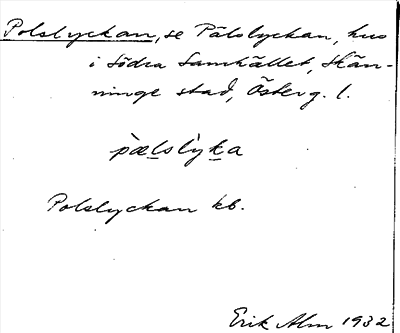 Polslyckan, se Pålslyckan, hus
i Södra Samhället, Skän-
ninge stad, Österg. l.
pæ̀lslỳka
Polslyckan kb.
Erik Alm 1932